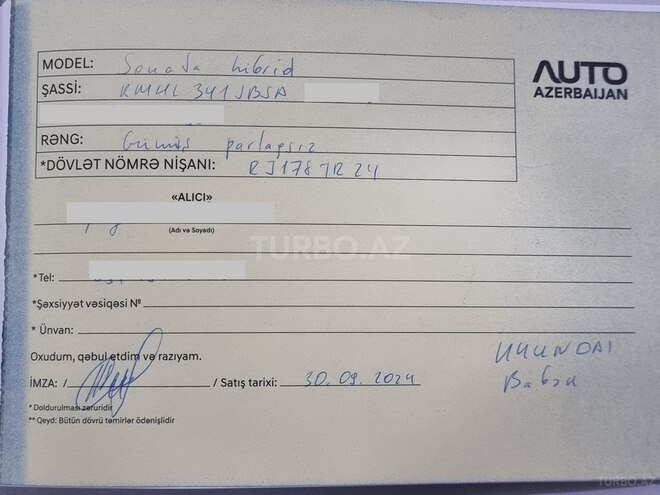 MODEL: Sonata hibrid
AUTO
AZERBAIJAN
ŞASSİ: KMHL341JBSA
RƏNG: Gümüş parlaqsız
*DÖVLƏT NÖMRƏ NİŞANI:
«ALICI»
(Adı və Soyadı)
TURBO.AZ
*Tel:
*Şəxsiyyət vəsiqəsi №
* Ünvan:
Oxudum, qəbul etdim və razıyam.
HYUNDAI
İMZA: / / Satış tarixi: 30.09.2024
* Doldurulması zəruridir
** Qeyd: Bütün dövrü təmirlər ödənişlidir
TURBO.AZ